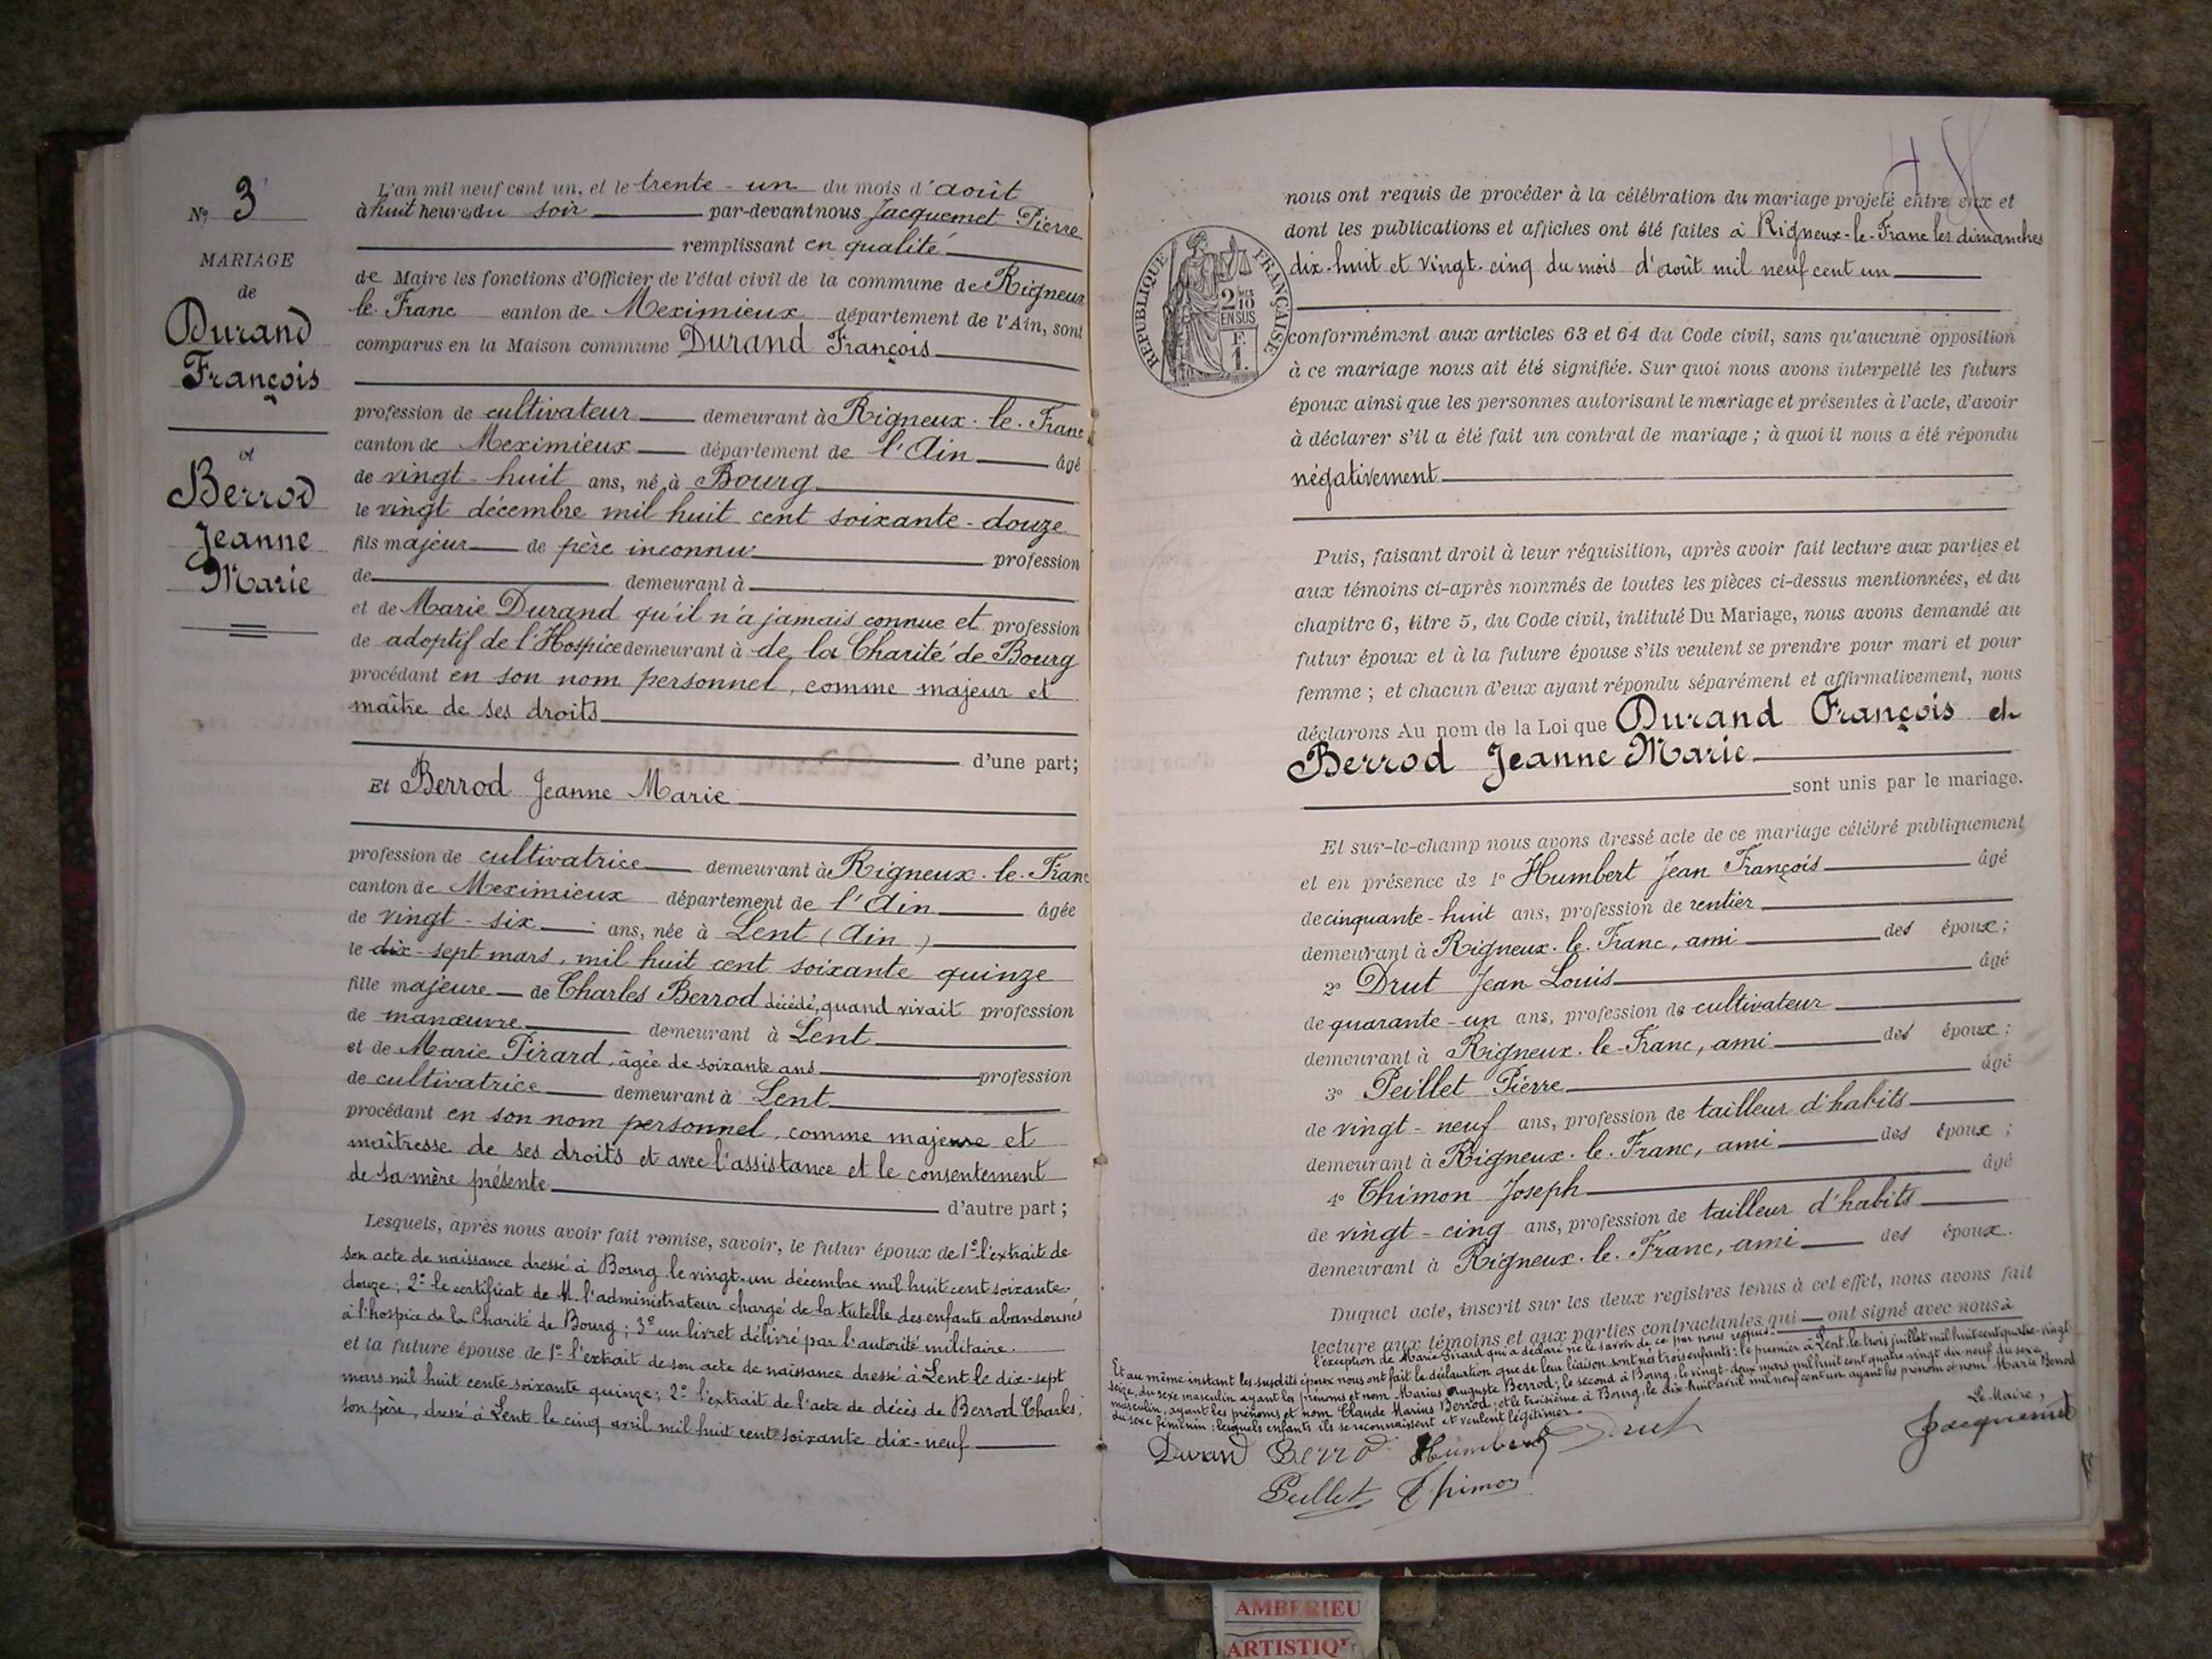 N° 3
MARIAGE
de
Durand
François
et
Berrod
Jeanne
Marie
L'an mil neuf cent un, et le trente-un du mois d'août
à huit heures du soir par-devant nous Jacquemet Pierre
remplissant en qualité
de Maire les fonctions d'Officier de l'état civil de la commune de Rigneux
le-Franc canton de Meximieux département de l'Ain, sont
comparus en la Maison commune Durand François
profession de cultivateur demeurant à Rigneux-le-Franc
canton de Meximieux département de l'Ain âgé
de vingt-huit ans, né à Bourg
le vingt décembre mil huit cent soixante-douze
fils majeur de père inconnu profession
de demeurant à
et de Marie Durand qu'il n'a jamais connue et profession
de adoptif de l'Hospice demeurant à de la Charité de Bourg
procédant en son nom personnel, comme majeur et
maître de ses droits
d'une part;
Et Berrod Jeanne Marie
profession de cultivatrice demeurant à Rigneux-le-Franc
canton de Meximieux département de l'Ain âgée
de vingt-six ans, née à Lent (Ain)
le dix-sept mars, mil huit cent soixante quinze
fille majeure de Charles Berrod décédé, quand vivait profession
de manœuvre demeurant à Lent
et de Marie Pirard, âgée de soixante ans profession
de cultivatrice demeurant à Lent
procédant en son nom personnel, comme majeure et
maîtresse de ses droits et avec l'assistance et le consentement
de sa mère présente
d'autre part;
Lesquels, après nous avoir fait remise, savoir, le futur époux de 1° l'extrait de
son acte de naissance dressé à Bourg le vingt-un décembre mil huit cent soixante-
douze; 2° le certificat de M. l'administrateur chargé de la tutelle des enfants abandonnés
à l'hospice de la Charité de Bourg; 3° un livret délivré par l'autorité militaire.
et la future épouse de 1° l'extrait de son acte de naissance dressé à Lent le dix-sept
mars mil huit cent soixante quinze; 2° l'extrait de l'acte de décès de Berrod Charles,
son père, dressé à Lent le cinq avril mil huit cent soixante dix-neuf
nous ont requis de procéder à la célébration du mariage projeté entre eux et
dont les publications et affiches ont été faites à Rigneux-le-Franc les dimanches
dix-huit et vingt-cinq du mois d'août mil neuf cent un
RÉPUBLIQUE FRANÇAISE
2/10 EN SUS
F. 1.
conformément aux articles 63 et 64 du Code civil, sans qu'aucune opposition
à ce mariage nous ait été signifiée. Sur quoi nous avons interpellé les futurs
époux ainsi que les personnes autorisant le mariage et présentes à l'acte, d'avoir
à déclarer s'il a été fait un contrat de mariage; à quoi il nous a été répondu
négativement
Puis, faisant droit à leur réquisition, après avoir fait lecture aux parties et
aux témoins ci-après nommés de toutes les pièces ci-dessus mentionnées, et du
chapitre 6, titre 5, du Code civil, intitulé Du Mariage, nous avons demandé au
futur époux et à la future épouse s'ils veulent se prendre pour mari et pour
femme; et chacun d'eux ayant répondu séparément et affirmativement, nous
déclarons Au nom de la Loi que Durand François et
Berrod Jeanne Marie
sont unis par le mariage.
Et sur-le-champ nous avons dressé acte de ce mariage célébré publiquement
et en présence de 1° Humbert Jean François âgé
de cinquante-huit ans, profession de rentier
demeurant à Rigneux-le-Franc, ami des époux;
2° Drut Jean Louis âgé
de quarante-un ans, profession de cultivateur
demeurant à Rigneux-le-Franc, ami des époux;
3° Peillet Pierre âgé
de vingt-neuf ans, profession de tailleur d'habits
demeurant à Rigneux-le-Franc, ami des époux;
4° Thimon Joseph âgé
de vingt-cinq ans, profession de tailleur d'habits
demeurant à Rigneux-le-Franc, ami des époux.
Duquel acte, inscrit sur les deux registres tenus à cet effet, nous avons fait
lecture aux témoins et aux parties contractantes qui ont signé avec nous à
l'exception de Marie Pirard qui a déclaré ne le savoir de ce par nous requis.
Et au même instant les susdits époux nous ont fait la déclaration que de leur liaison sont nés trois enfants: le premier à Lent, le trois juillet mil huit cent quatre-vingt
seize, du sexe masculin ayant les prénoms et nom Marius Auguste Berrod; le second à Bourg, le vingt-deux mars mil huit cent quatre vingt dix-neuf du sexe
masculin, ayant les prénoms et nom Claude Marius Berrod; et le troisième à Bourg, le dix-huit avril mil neuf cent un ayant les prénom et nom Marie Berrod
du sexe féminin; lesquels enfants ils se reconnaissent et veulent légitimer.
Le Maire,
Jacquemet
Durand Berrod Humbert Drut
Peillet Thimon
AMBERIEU
ARTISTIQ